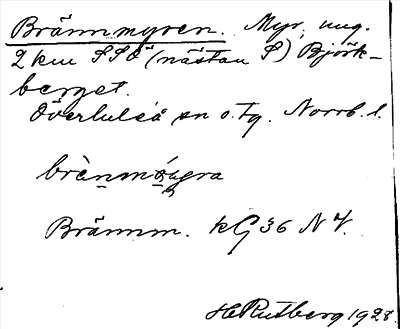 Brännmyren. Myr, ung.
2 km SSO (nästan S) Björk-
berget.
Överluleå sn o. tg. Norrb. l.
brènmó̤ugra
Brännm. kG 36 NV.
H Rutberg 1928.